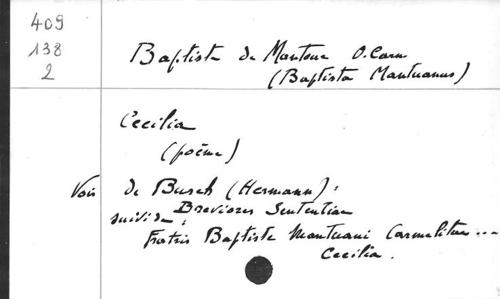 409
138
2
Baptista de Mantoue O.Carm
(Baptista Mantuanus)
Cecilia
(poème)
Voir de Busch (Hermann) :
Breviores Sententiae
suivi de :
Fratris Baptiste Mantuani Carmelitae...
Cecilia.